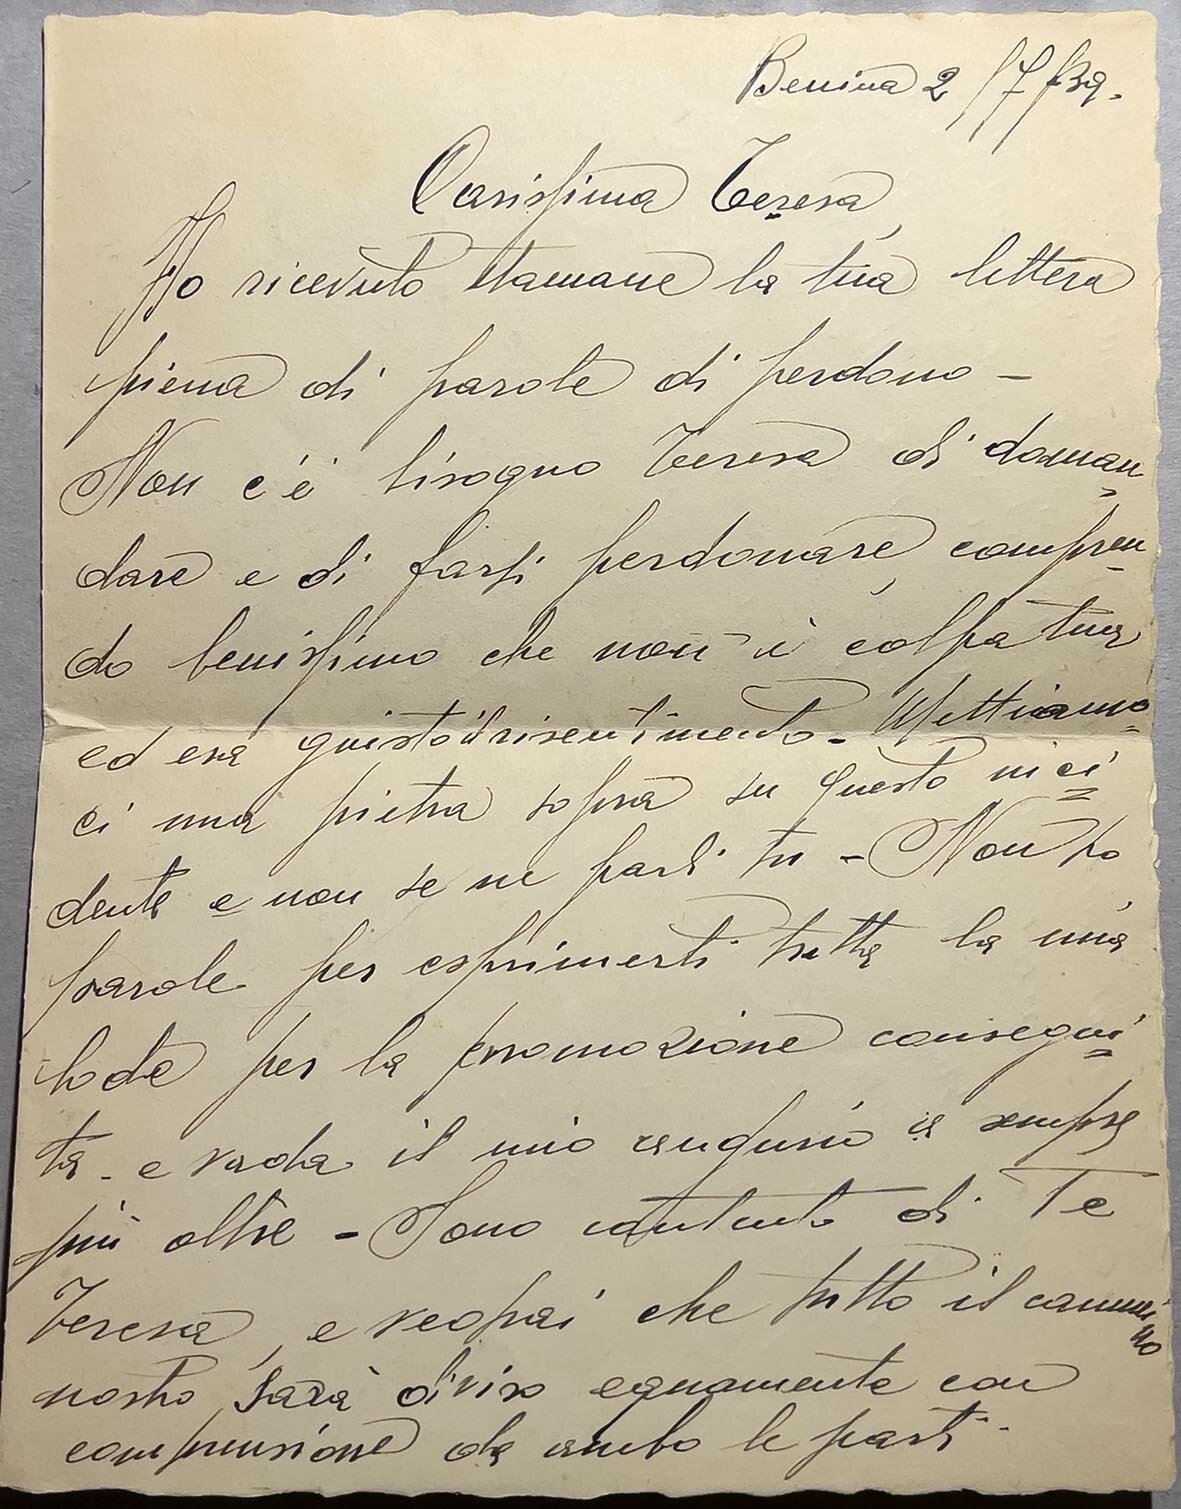 Benina 2/7/39.
Carissima Teresa,
Ho ricevuto stamane la tua lettera
piena di parole di perdono -
Non c'è bisogno Teresa di doman-
dare e di farsi perdonare, compren-
do benissimo che non è colpa tua
ed era giusto il risentimento - Mettiamo-
ci una pietra sopra su questo inci=
dente e non se ne parli più - Non ho
parole per esprimerti tutta la mia
lode per la promozione consegui=
ta - e vada il mio augurio a sempre
più oltre - Sono contento di Te
Teresa, e vedrai che tutto il cammino
nostro sarà diviso equamente con
comprensione da ambo le parti -